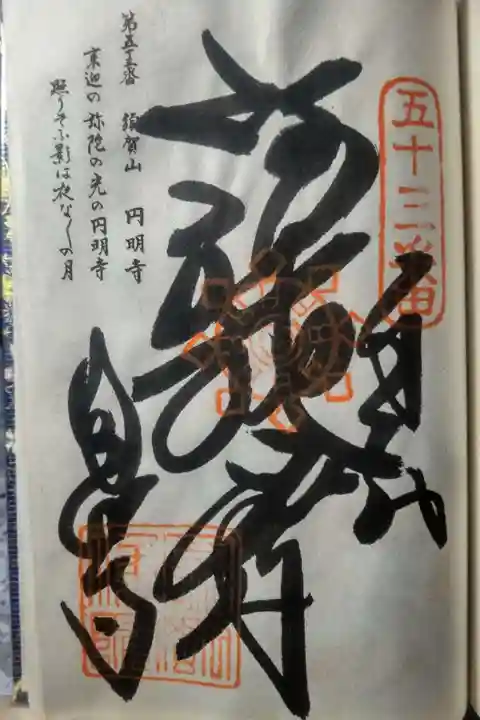 五十三番
奉納
阿弥陀
円明寺
第五十三番 須賀山 円明寺
来迎の弥陀の光の円明寺
照りそふ影は夜な〳〵の月